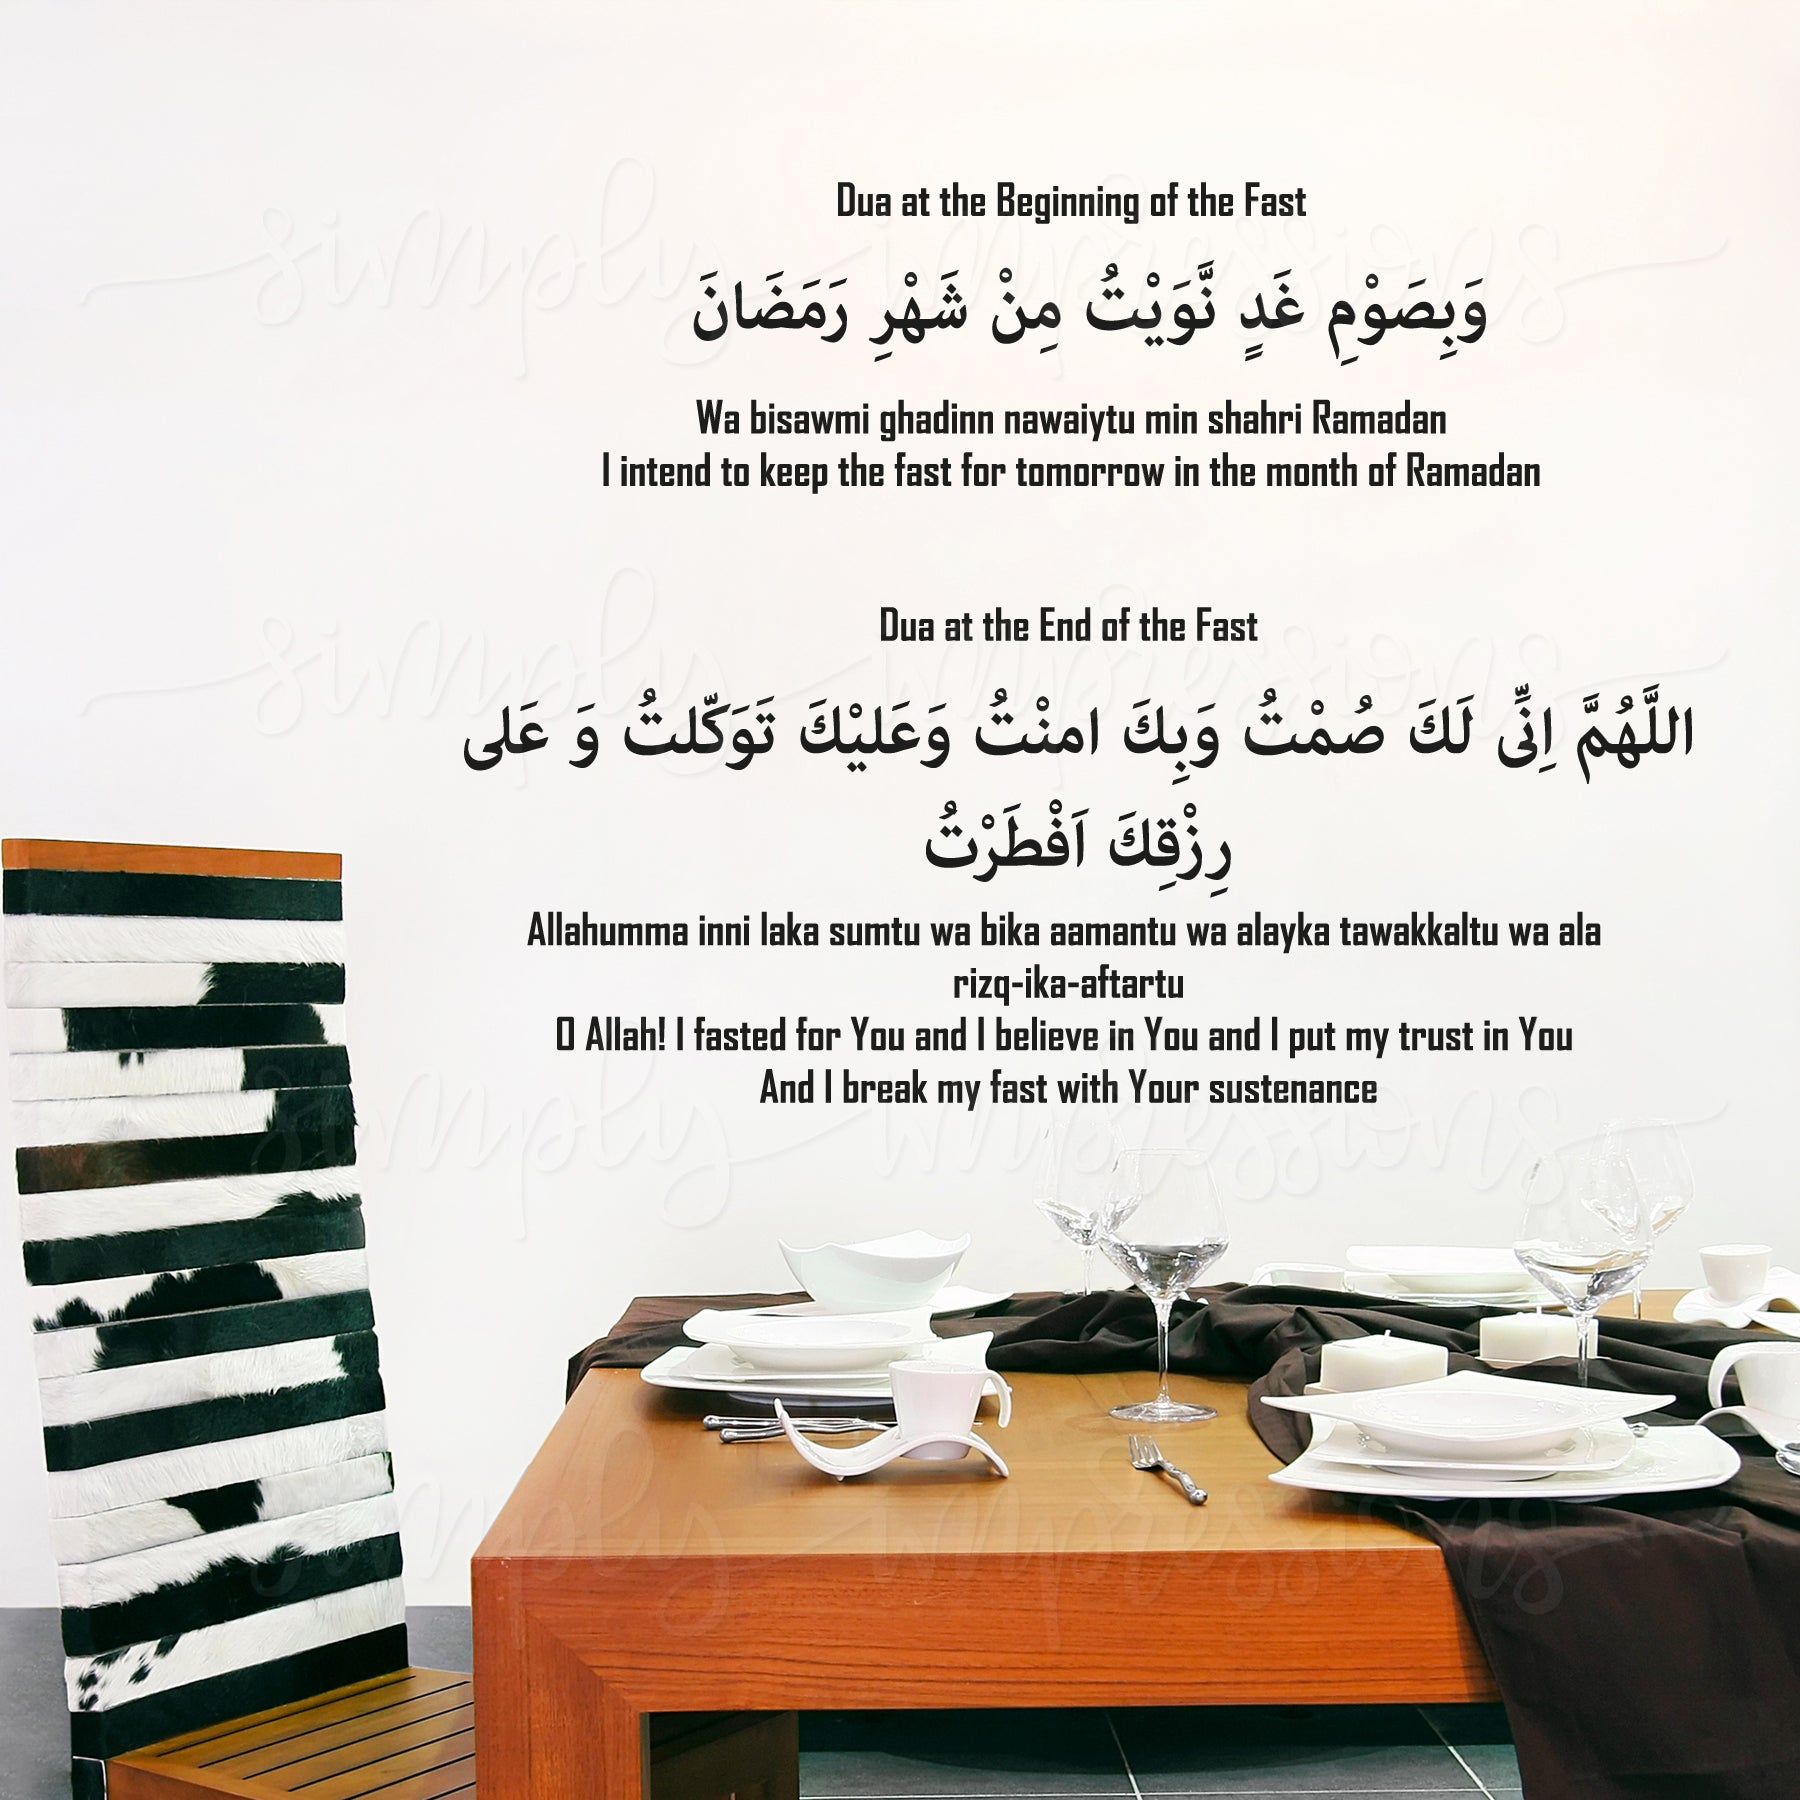 Dua at the Beginning of the Fast
وَبِصَوْمِ غَدٍ نَّوَيْتُ مِنْ شَهْرِ رَمَضَانَ
Wa bisawmi ghadinn nawaiytu min shahri Ramadan
I intend to keep the fast for tomorrow in the month of Ramadan
Dua at the End of the Fast
اللَّهُمَّ اِنِّى لَكَ صُمْتُ وَبِكَ امنْتُ وَعَليْكَ تَوَكّلتُ وَ عَلى
رِزْقِكَ اَفْطَرْتُ
Allahumma inni laka sumtu wa bika aamantu wa alayka tawakkaltu wa ala
rizq-ika-aftartu
O Allah! I fasted for You and I believe in You and I put my trust in You
And I break my fast with Your sustenance
simply impressions
simply impressions
simply impressions
simply impressions